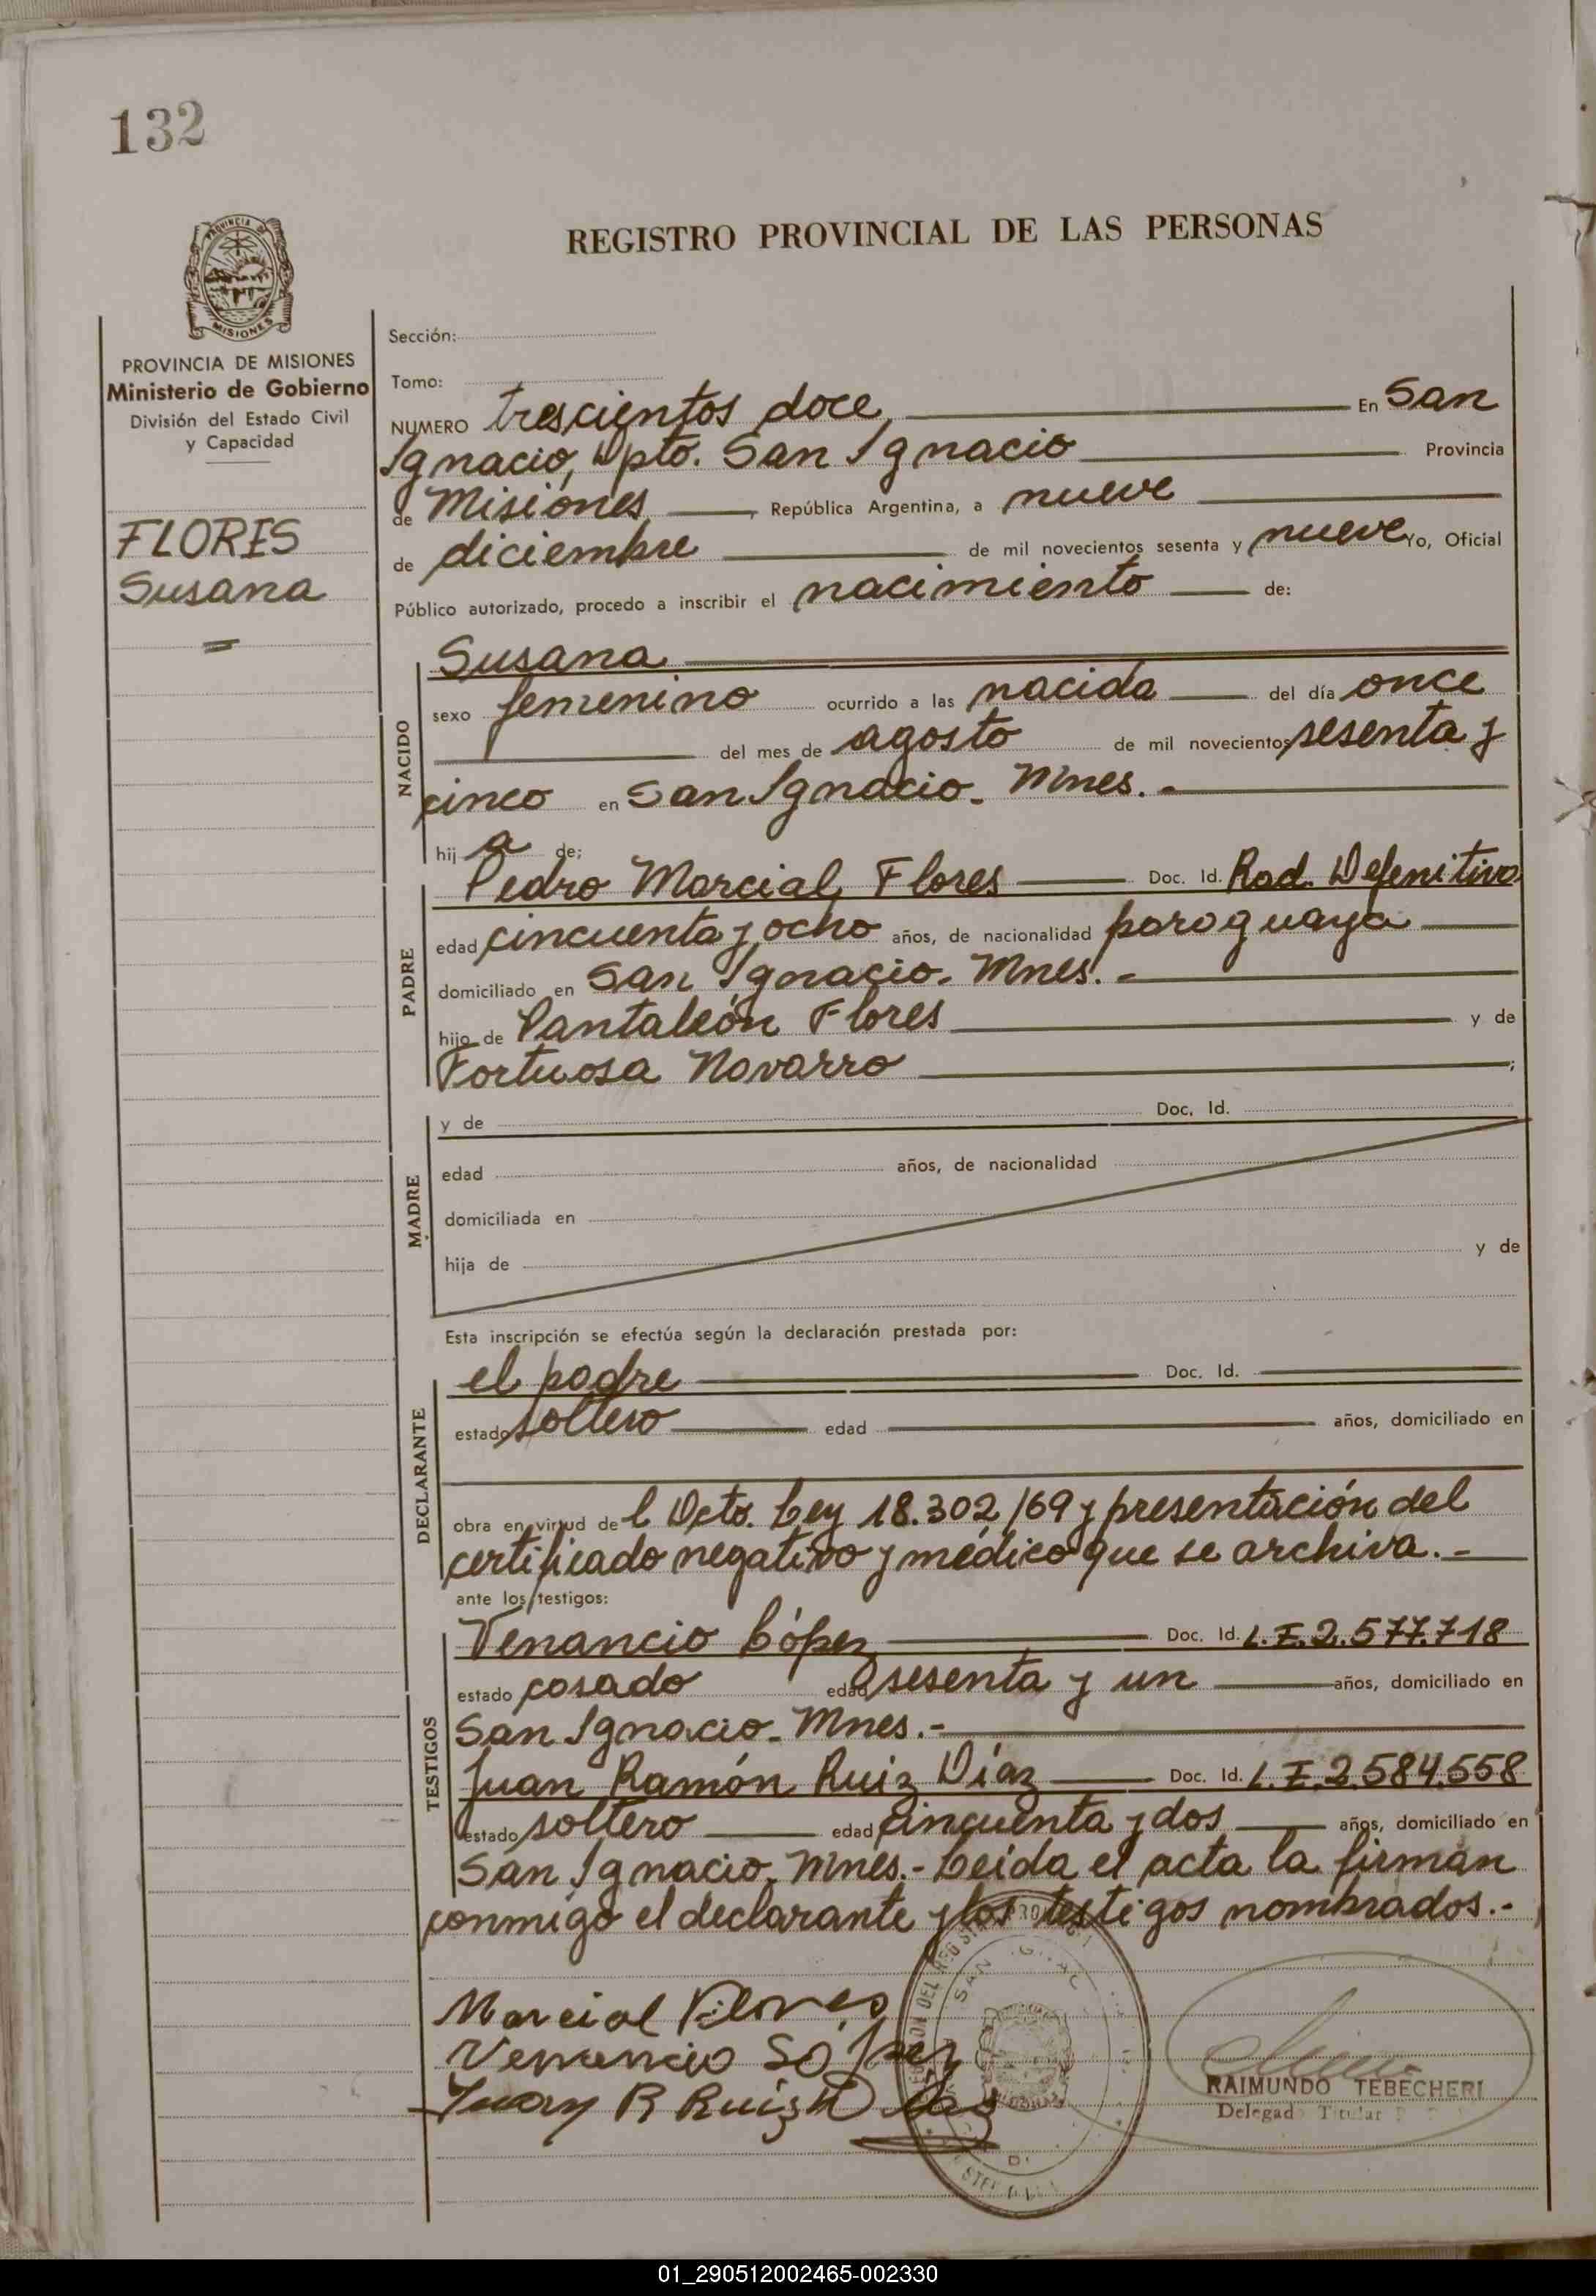 132
PROVINCIA DE MISIONES
MISIONES
PROVINCIA DE MISIONES
Ministerio de Gobierno
División del Estado Civil
y Capacidad
FLORES
Susana
=
REGISTRO PROVINCIAL DE LAS PERSONAS
Sección:
Tomo:
NUMERO trescientos doce, En San
Ignacio, Dpto. San Ignacio Provincia
de Misiones, República Argentina, a nueve
de diciembre de mil novecientos sesenta y nueve Yo, Oficial
Público autorizado, procedo a inscribir el nacimiento de:
NACIDO
Susana
sexo femenino ocurrido a las nacida del día once
del mes de agosto de mil novecientos sesenta y
cinco en San Ignacio. Mnes.-
hij a de;
PADRE
Pedro Marcial Flores Doc. Id. Rad. Defenitiva
edad cincuenta y ocho años, de nacionalidad paraguaya
domiciliado en San Ignacio. Mnes.-
hijo de Pantaleón Flores y de
Fortuosa Navarro ;
MADRE
y de Doc. Id.
edad años, de nacionalidad
domiciliada en
hija de y de
Esta inscripción se efectúa según la declaración prestada por:
DECLARANTE
el padre Doc. Id.
estado soltero edad años, domiciliado en
obra en virtud de l Dcto. Ley 18.302/69 y presentación del
certificado negativo y médico que se archiva.-
ante los testigos:
TESTIGOS
Venancio López Doc. Id. L.E.2.577.718
estado casado edad sesenta y un años, domiciliado en
San Ignacio. Mnes.-
Juan Ramón Ruiz Díaz Doc. Id. L.E.2.584.558
estado soltero edad cincuenta y dos años, domiciliado en
San Ignacio. Mnes.- Leída el acta la firman
conmigo el declarante y los testigos nombrados.-
Marcial Flores
Venancio López
Juan R Ruiz Diaz
RAIMUNDO TEBECHERI
Delegado Titular
01_290512002465-002330